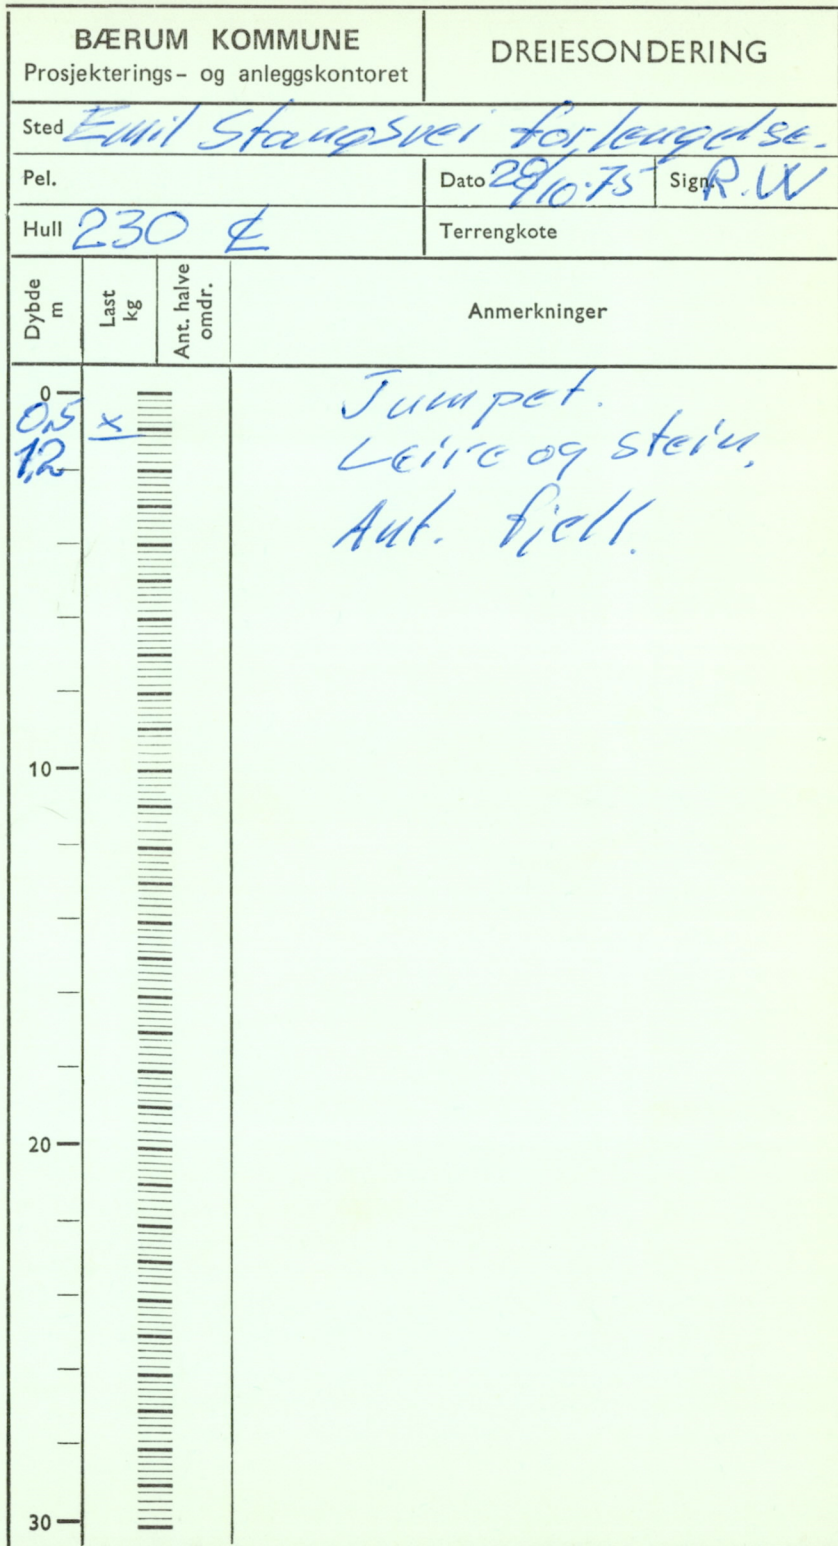 BÆRUM KOMMUNE
Prosjekterings- og anleggskontoret
DREIESONDERING
Sted Emil Stangsvei forlengelse.
Pel.
Dato 29/10-75 Sign. R.W
Hull 230 ₵
Terrengkote
Dybde m
Last kg
Ant. halve omdr.
Anmerkninger
0
Jumpet.
0,5 x
Leire og stein.
1,2
Ant. fjell.
10
20
30